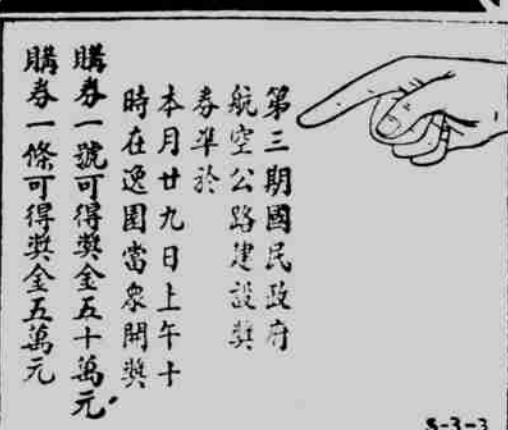 第三期國民政府
航空公路建設獎
券準於
本月廿九日上午十
時在逸園當衆開獎
購券一號可得獎金五十萬元
購券一條可得獎金五萬元
S-3-3